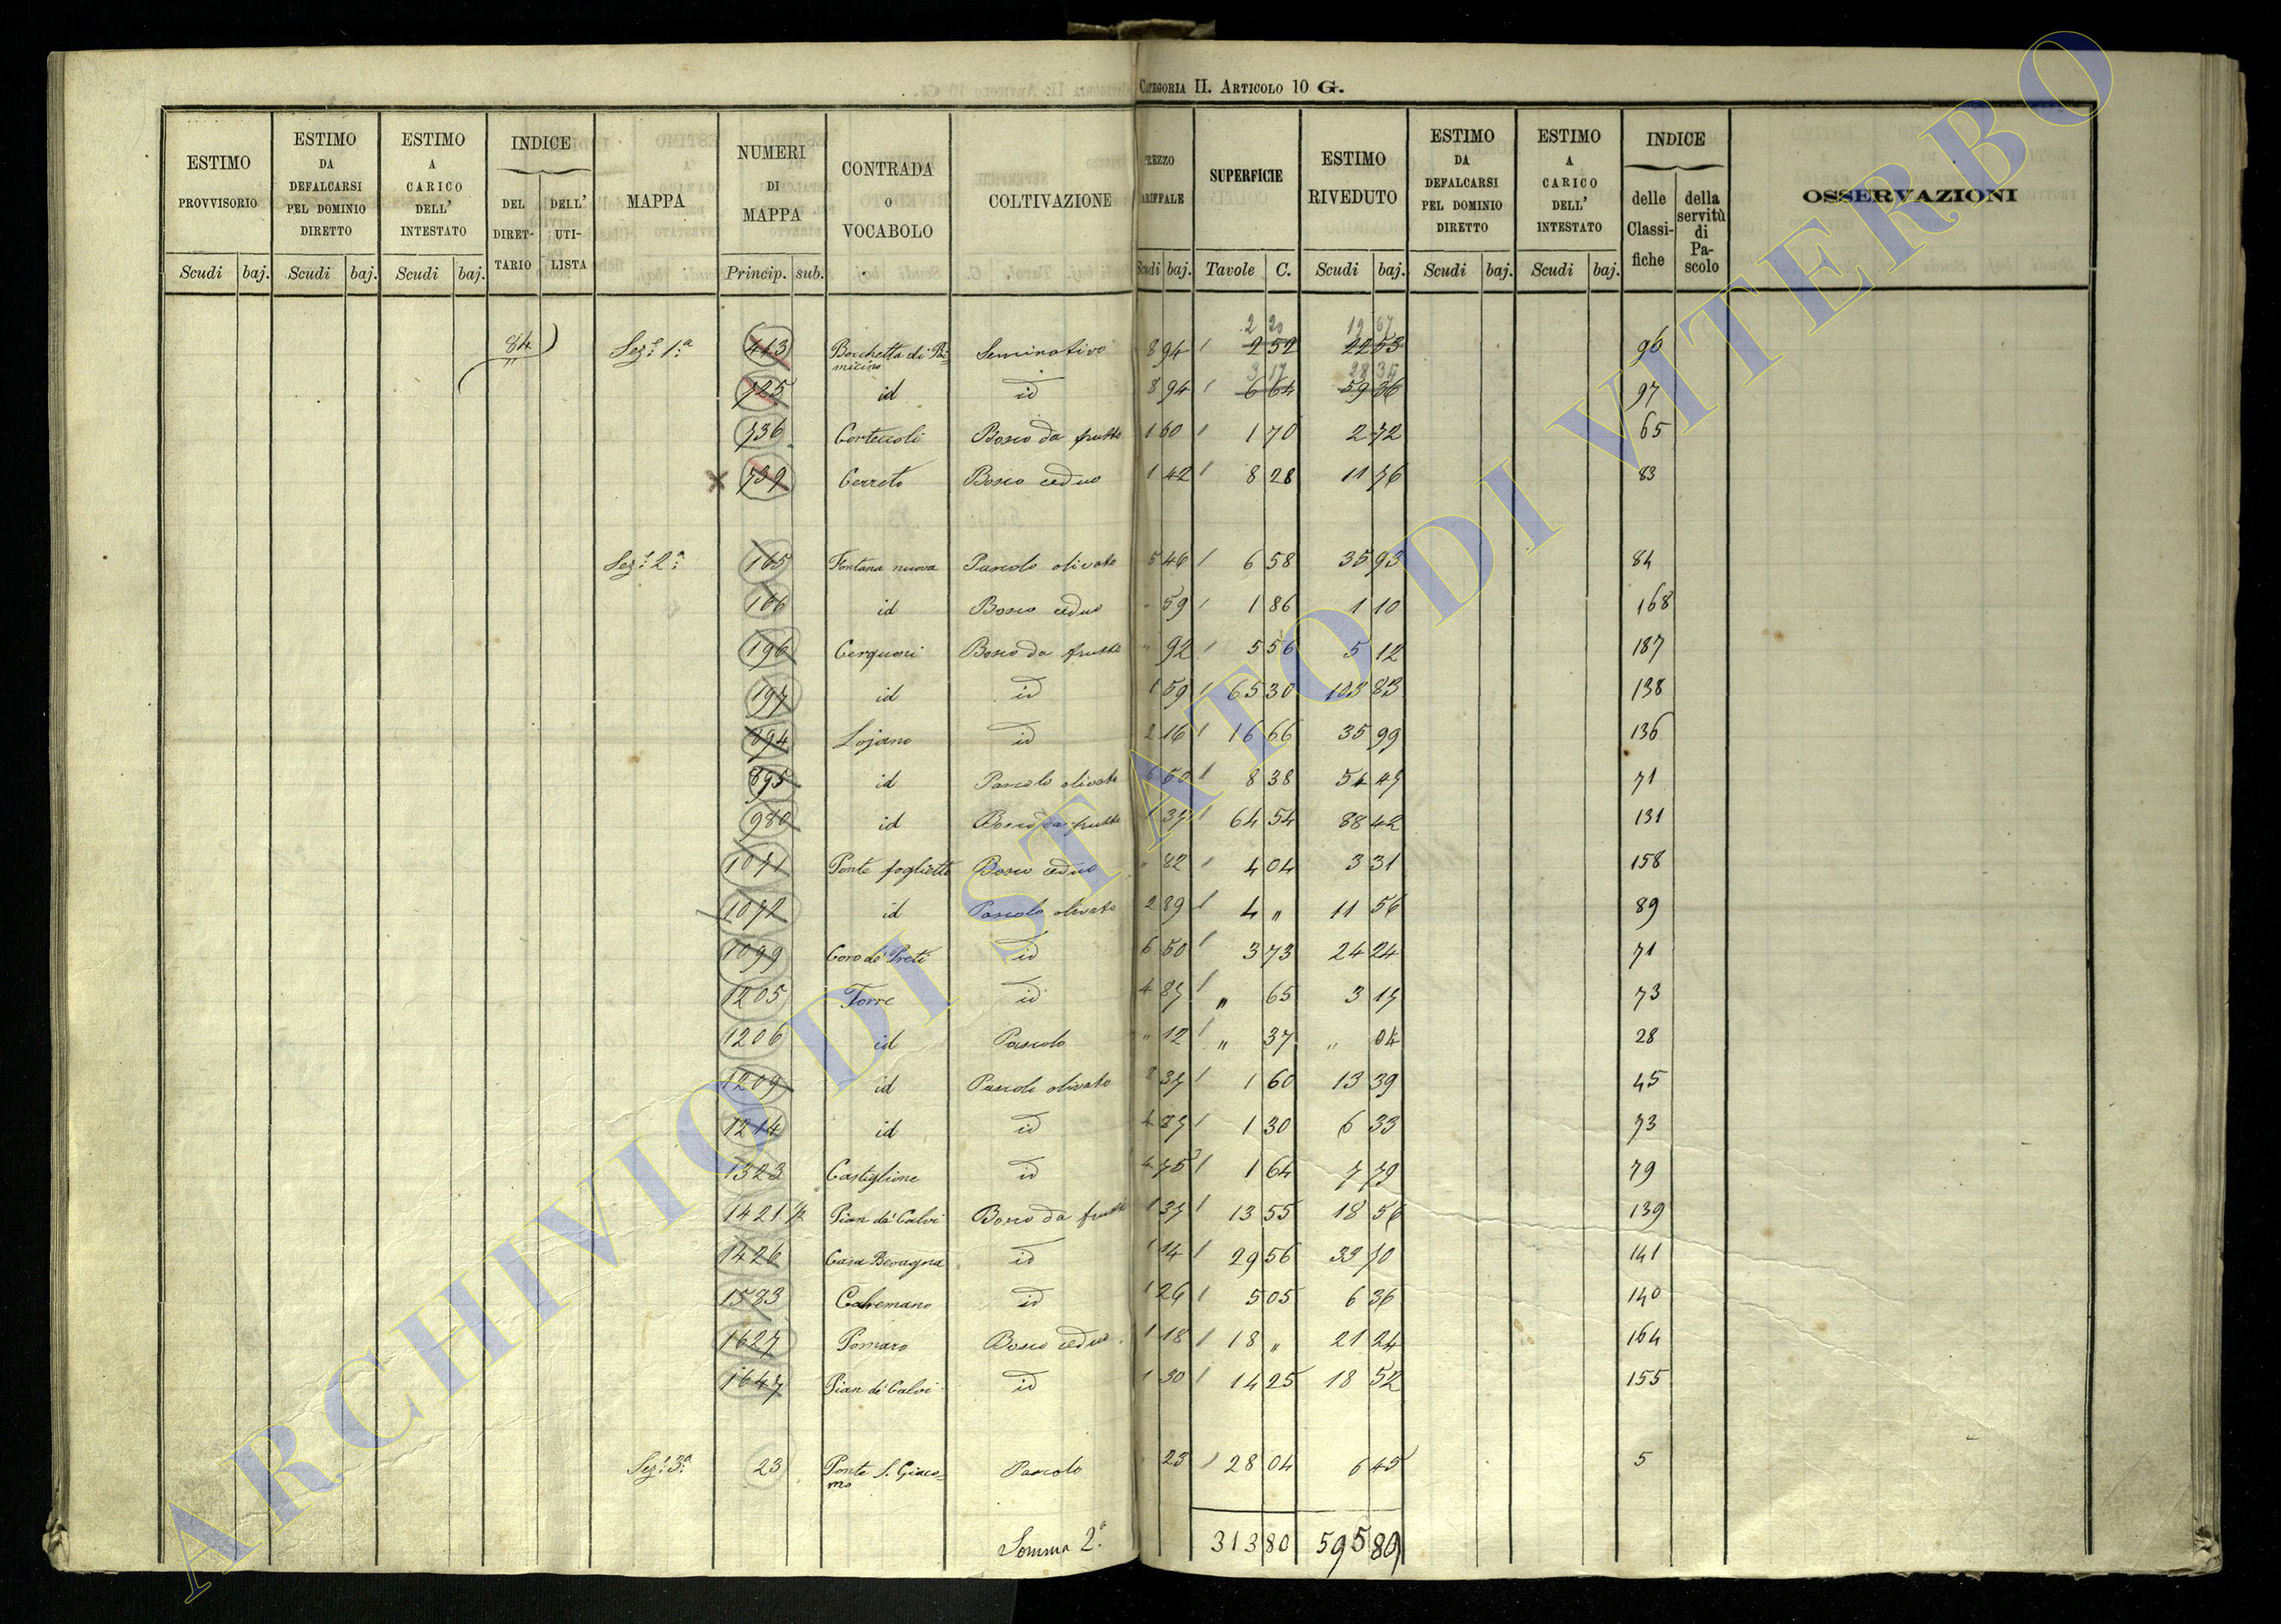 CATEGORIA II. ARTICOLO 10 G.
ESTIMO PROVVISORIO Scudi baj.
ESTIMO DA DEFALCARSI PEL DOMINIO DIRETTO Scudi baj.
ESTIMO A CARICO DELL' INTESTATO Scudi baj.
INDICE DEL DIRET-TARIO DELL' UTI-LISTA
MAPPA
NUMERI DI MAPPA Princip. sub.
CONTRADA O VOCABOLO
COLTIVAZIONE
PREZZO TARIFFALE Scudi baj.
SUPERFICIE Tavole C.
ESTIMO RIVEDUTO Scudi baj.
ESTIMO DA DEFALCARSI PEL DOMINIO DIRETTO Scudi baj.
ESTIMO A CARICO DELL' INTESTATO Scudi baj.
INDICE delle Classi-fiche della servitù di Pa-scolo
OSSERVAZIONI
2 20 19 67
84 Sez.e 1.a 413 Bocchetta di Pa-micino Seminativo 8 94 2 52 22 53 96
3 17 28 34
725 id id 8 94 6 64 59 36 97
736 Corteccoli Bosco da frutto 1 60 1 70 2 72 65
739 Cerreto Bosco ceduo 1 42 8 28 11 76 83
Sez.e 2.a 165 Fontana nuova Pascolo olivato 5 46 6 58 35 93 84
166 id Bosco ceduo " 59 1 86 1 10 168
196 Cerquoni Bosco da frutto " 92 5 56 5 12 187
197 id id 1 59 65 30 103 83 138
894 Lojano id 2 16 16 66 35 99 136
895 id Pascolo olivato 6 50 8 38 54 47 71
980 id Bosco da frutto 1 37 64 54 88 42 131
1071 Ponte foglietto Bosco ceduo " 82 4 04 3 31 158
1072 id Pascolo olivato 2 89 4 " 11 56 89
1099 Coro de' Preti id 6 50 3 73 24 24 71
1205 Torre id 4 87 " 65 3 17 73
1206 id Pascolo " 12 " 37 " 04 28
1209 id Pascolo olivato 8 37 1 60 13 39 45
1214 id id 4 87 1 30 6 33 73
1323 Castiglione id 4 75 1 64 7 79 79
1421 Pian de' Calvi Bosco da frutto 1 37 13 55 18 56 139
1426 Casa Bevagna id 1 14 29 56 33 70 141
1583 Calvemano id 1 26 5 05 6 36 140
1627 Pomaro Bosco ceduo 1 18 18 " 21 24 164
1647 Pian de' Calvi id 1 30 14 25 18 52 155
Sez.e 3.a 23 Ponte S. Giaco-mo Pascolo 23 28 04 6 45 5
Somma 2.a 313 80 595 80
ARCHIVIO DI STATO DI VITERBO